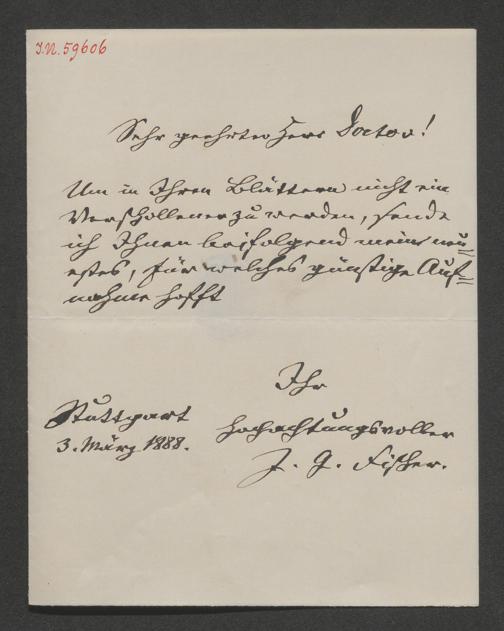 I.N. 59606
Sehr geehrter Herr Doctor!
Um in Ihren Blättern nicht ein
Verschollener zu werden, sende
ich Ihnen beifolgend mein neu=
estes, für welches günstige Auf=
nahme hofft
Ihr
Stuttgart
hochachtungsvoller
3. März 1888.
J. G. Fischer.